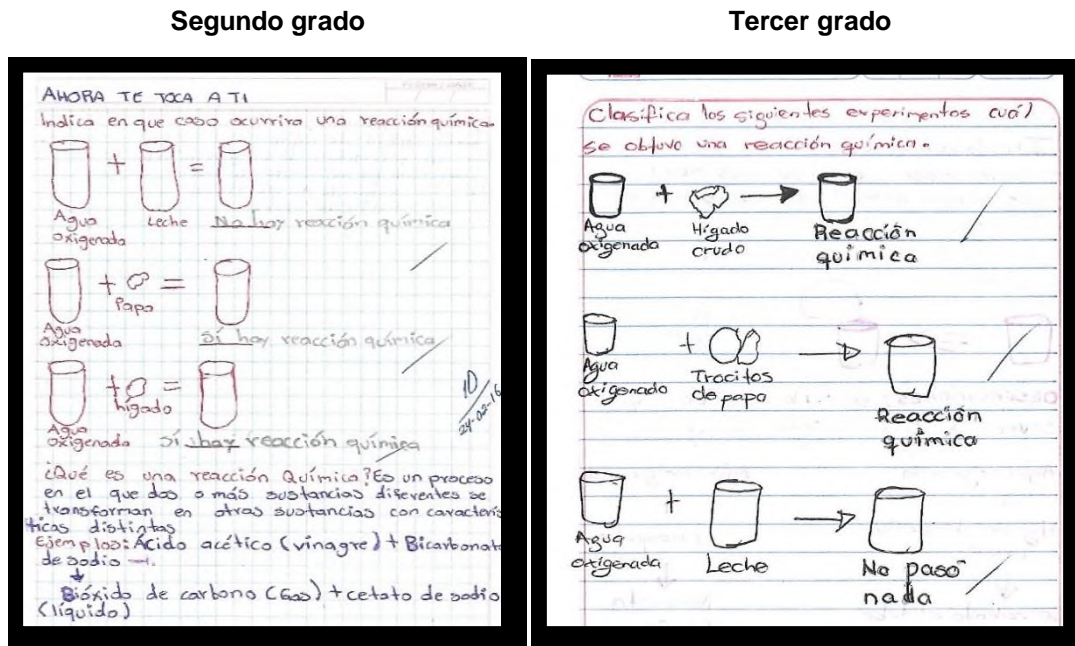 Segundo grado
AHORA TE TOCA A TI
Indica en que caso ocurrira una reacción química.
+ =
Agua oxigenada
Leche
No hay reacción química
+ =
Papa
Agua oxigenada
Sí hay reacción química
+ =
hígado
Agua oxigenada
Sí hay reacción química
10
24-02-16
¿Qué es una reacción Química? Es un proceso
en el que dos o más sustancias diferentes se
transforman en otras sustancias con caracterís
ticas distintas
Ejemplos: Ácido acético (vinagre) + Bicarbonato
de sodio →.
Bióxido de carbono (Gas) + cetato de sodio
(líquido)
Tercer grado
Clasifica los siguientes experimentos cuál
se obtuvo una reacción química.
+
Agua oxigenada
Hígado crudo
Reacción química
+
Agua oxigenado
Trocitos de papa
Reacción química
+
Agua oxigenada
Leche
No pasó nada